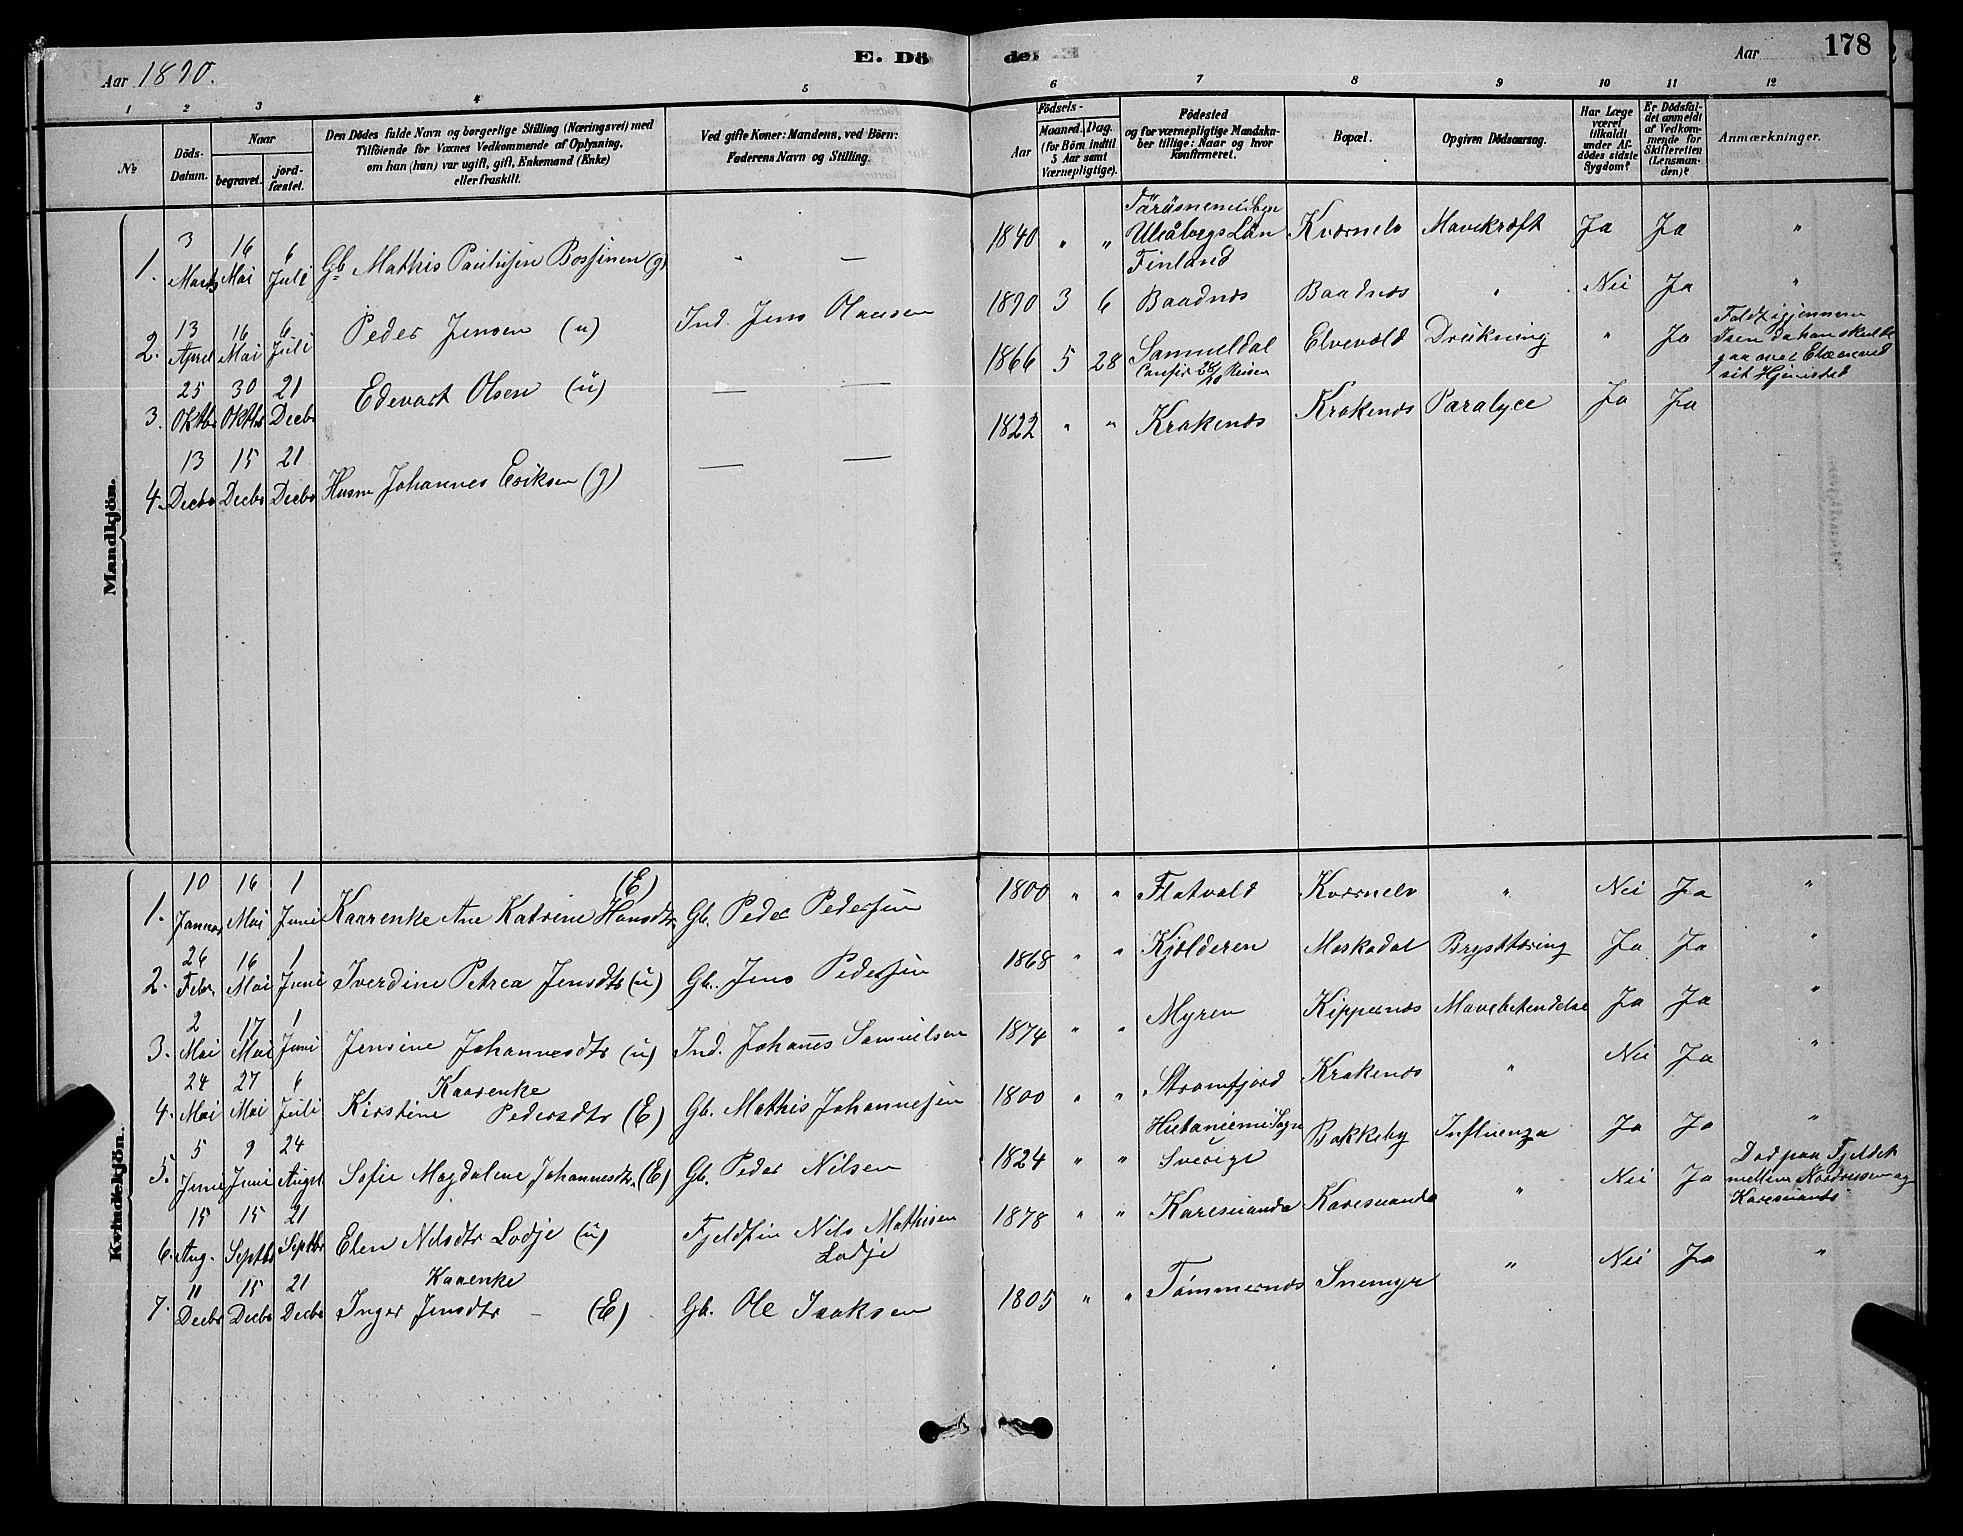 E. Dö
de:
Aar 1890.
Aar
178
1 2 3 4 5 6 7 8 9 10 11 12
No
Döds-Datum.
Naar
begravet.
jord-fæstet.
Den Dödes fulde Navn og borgerlige Stilling (Næringsvei) med
Tilföiende for Voxnes Vedkommende af Oplysning,
om han (hun) var ugift, gift, Enkemand (Enke)
eller fraskilt.
Ved gifte Koner: Mandens, ved Börn:
Faderens Navn og Stilling.
Födsels-
Aar
Maaned. Dag.
(for Börn indtil
5 Aar samt
Værnepligtige).
Födested
og for værnepligtige Mandska-
ber tillige: Naar og hvor
konfirmeret.
Bopæl.
Opgiven Dödsaarsag.
Har Læge
været
tilkaldt
under Af-
dödes sidste
Sygdom?
Er Dödsfal-
det anmeldt
af Vedkom-
mende for
Skifteretten
(Lensman-
den)?
Anmærkninger.
Mandkjön.
1. 3 Marts 16 Mai 6 Juli Gb. Mathis Paulusen Bossinen (g) " — 1840 " " Uleåborgs Län Finland Kværnelv Mavekræft Ja Ja "
2. 13 April 16 Mai 6 Juli Peder Jensen (u) Ind. Jens Hansen 1890 3 6 Baadnæs Baadnæs " Nei Ja "
3. 25 Oktbr 30 Oktbr 21 Decbr Edevart Olsen (u) — — 1866 5 28 Samueldal Elvevold Drukning " Ja Faldt igjennem
Isen da han skulde
gaa over Elven ved
sit Hjemsted
4. 13 Decbr 15 Decbr 21 Decbr Husm Johannes Eriksen (g) — — 1822 " " Krakenæs Krakenæs Paralyce Ja Ja
Kvindekjön.
1. 10 Januar 16 Mai 1 Juni Kaarenke Ane Katrine Hansdtr (E) Gb. Peder Pedersen 1800 " " Flatvold Kværnelv " Nei Ja "
2. 26 Febr. 16 Mai 1 Juni Iverdine Petrea Jensdtr (u) Gb. Jens Pedersen 1868 " " Kjelderen Maskodal Brysttæring Ja Ja "
3. 2 Mai 17 Mai 1 Juni Jensine Johannesdtr (u) Ind. Johanes Samuelsen 1874 " " Myren Kippernæs Mavebetendelse Ja Ja "
4. 24 Mai 27 Mai 6 Juli Kaarenke
Kirstine Pedersdtr (E) Gb. Mathis Johannesen 1800 " " Strømfjord Krakenæs " Nei Ja "
5. 5 Juni 9 Juni 24 Augst Sofie Magdalene Johannesdtr. (E) Gb. Peder Nilsen 1824 " " Hietaniemi Sogn
Sverige Bakkeby Influenza Ja Ja "
6. 15 Aug. 15 Septbr 21 Septbr Elen Nilsdtr Lodje (u) Fjeldfin Nils Mathisen
Lodje 1878 " " Karesuando Karesuando " Nei Ja Død paa Fjeldet
mellem Nordreisen og
Karesuando
7. 11 Decbr 15 Decbr 21 Decbr Kaarenke
Inger Jensdtr — (E) Gb. Ole Isaksen 1805 " " Tømmernæs Snemyr " Nei Ja "